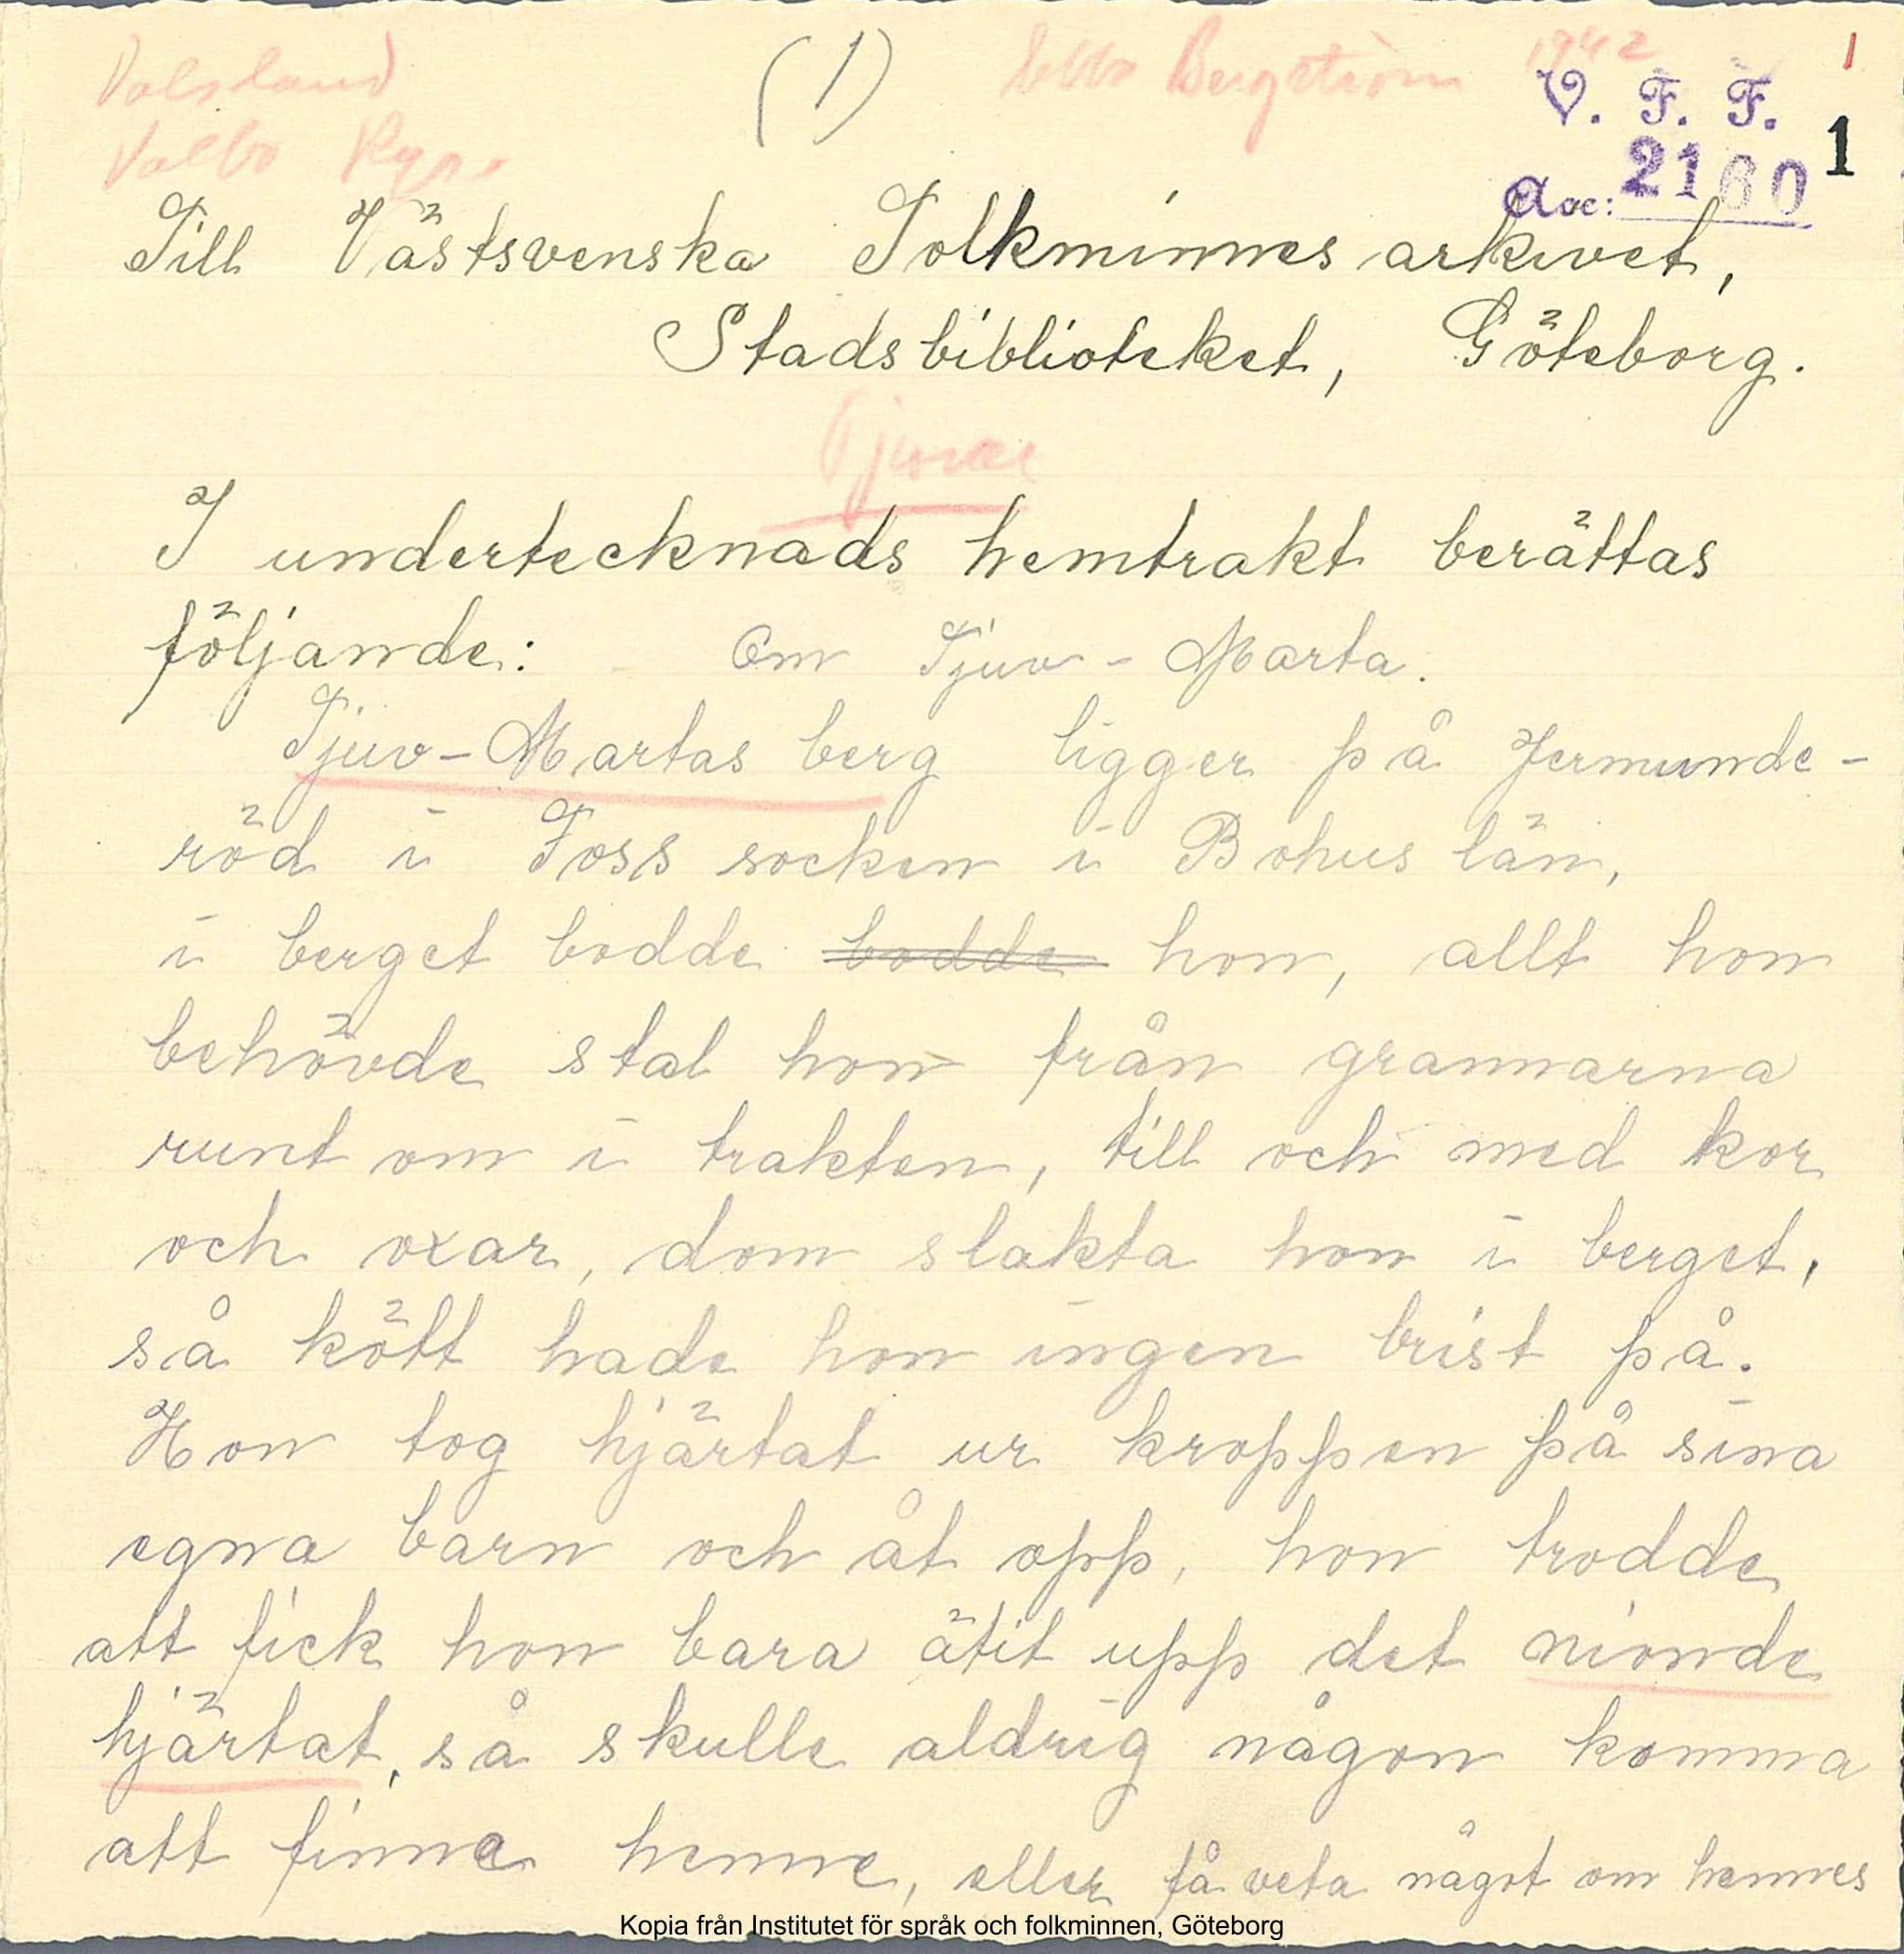 Dalsland (1) Ebba Bergström 1942 1
V. F. F.
Valbo Ryr. Acc: 2160 1
Till Västsvenska Folkminnesarkivet,
Stadsbiblioteket, Göteborg.
Tjuvar
I undertecknads hemtrakt berättas
följande: Om Tjuv-Marta.
Tjuv-Martas berg ligger på Jermunde-
röd i Foss socken i Bohus län,
i berget bodde bodde hon, allt hon
behövde stal hon från grannarna
runt om i trakten, till och med kor
och oxar, dom slakta hon i berget,
så kött hade hon ingen brist på.
Hon tog hjärtat ur kroppen på sina
egna barn och åt opp, hon trodde
att fick hon bara ätit upp det nionde
hjärtat, så skulle aldrig någon komma
att finna henne, eller få veta något om hennes
Kopia från Institutet för språk och folkminnen, Göteborg